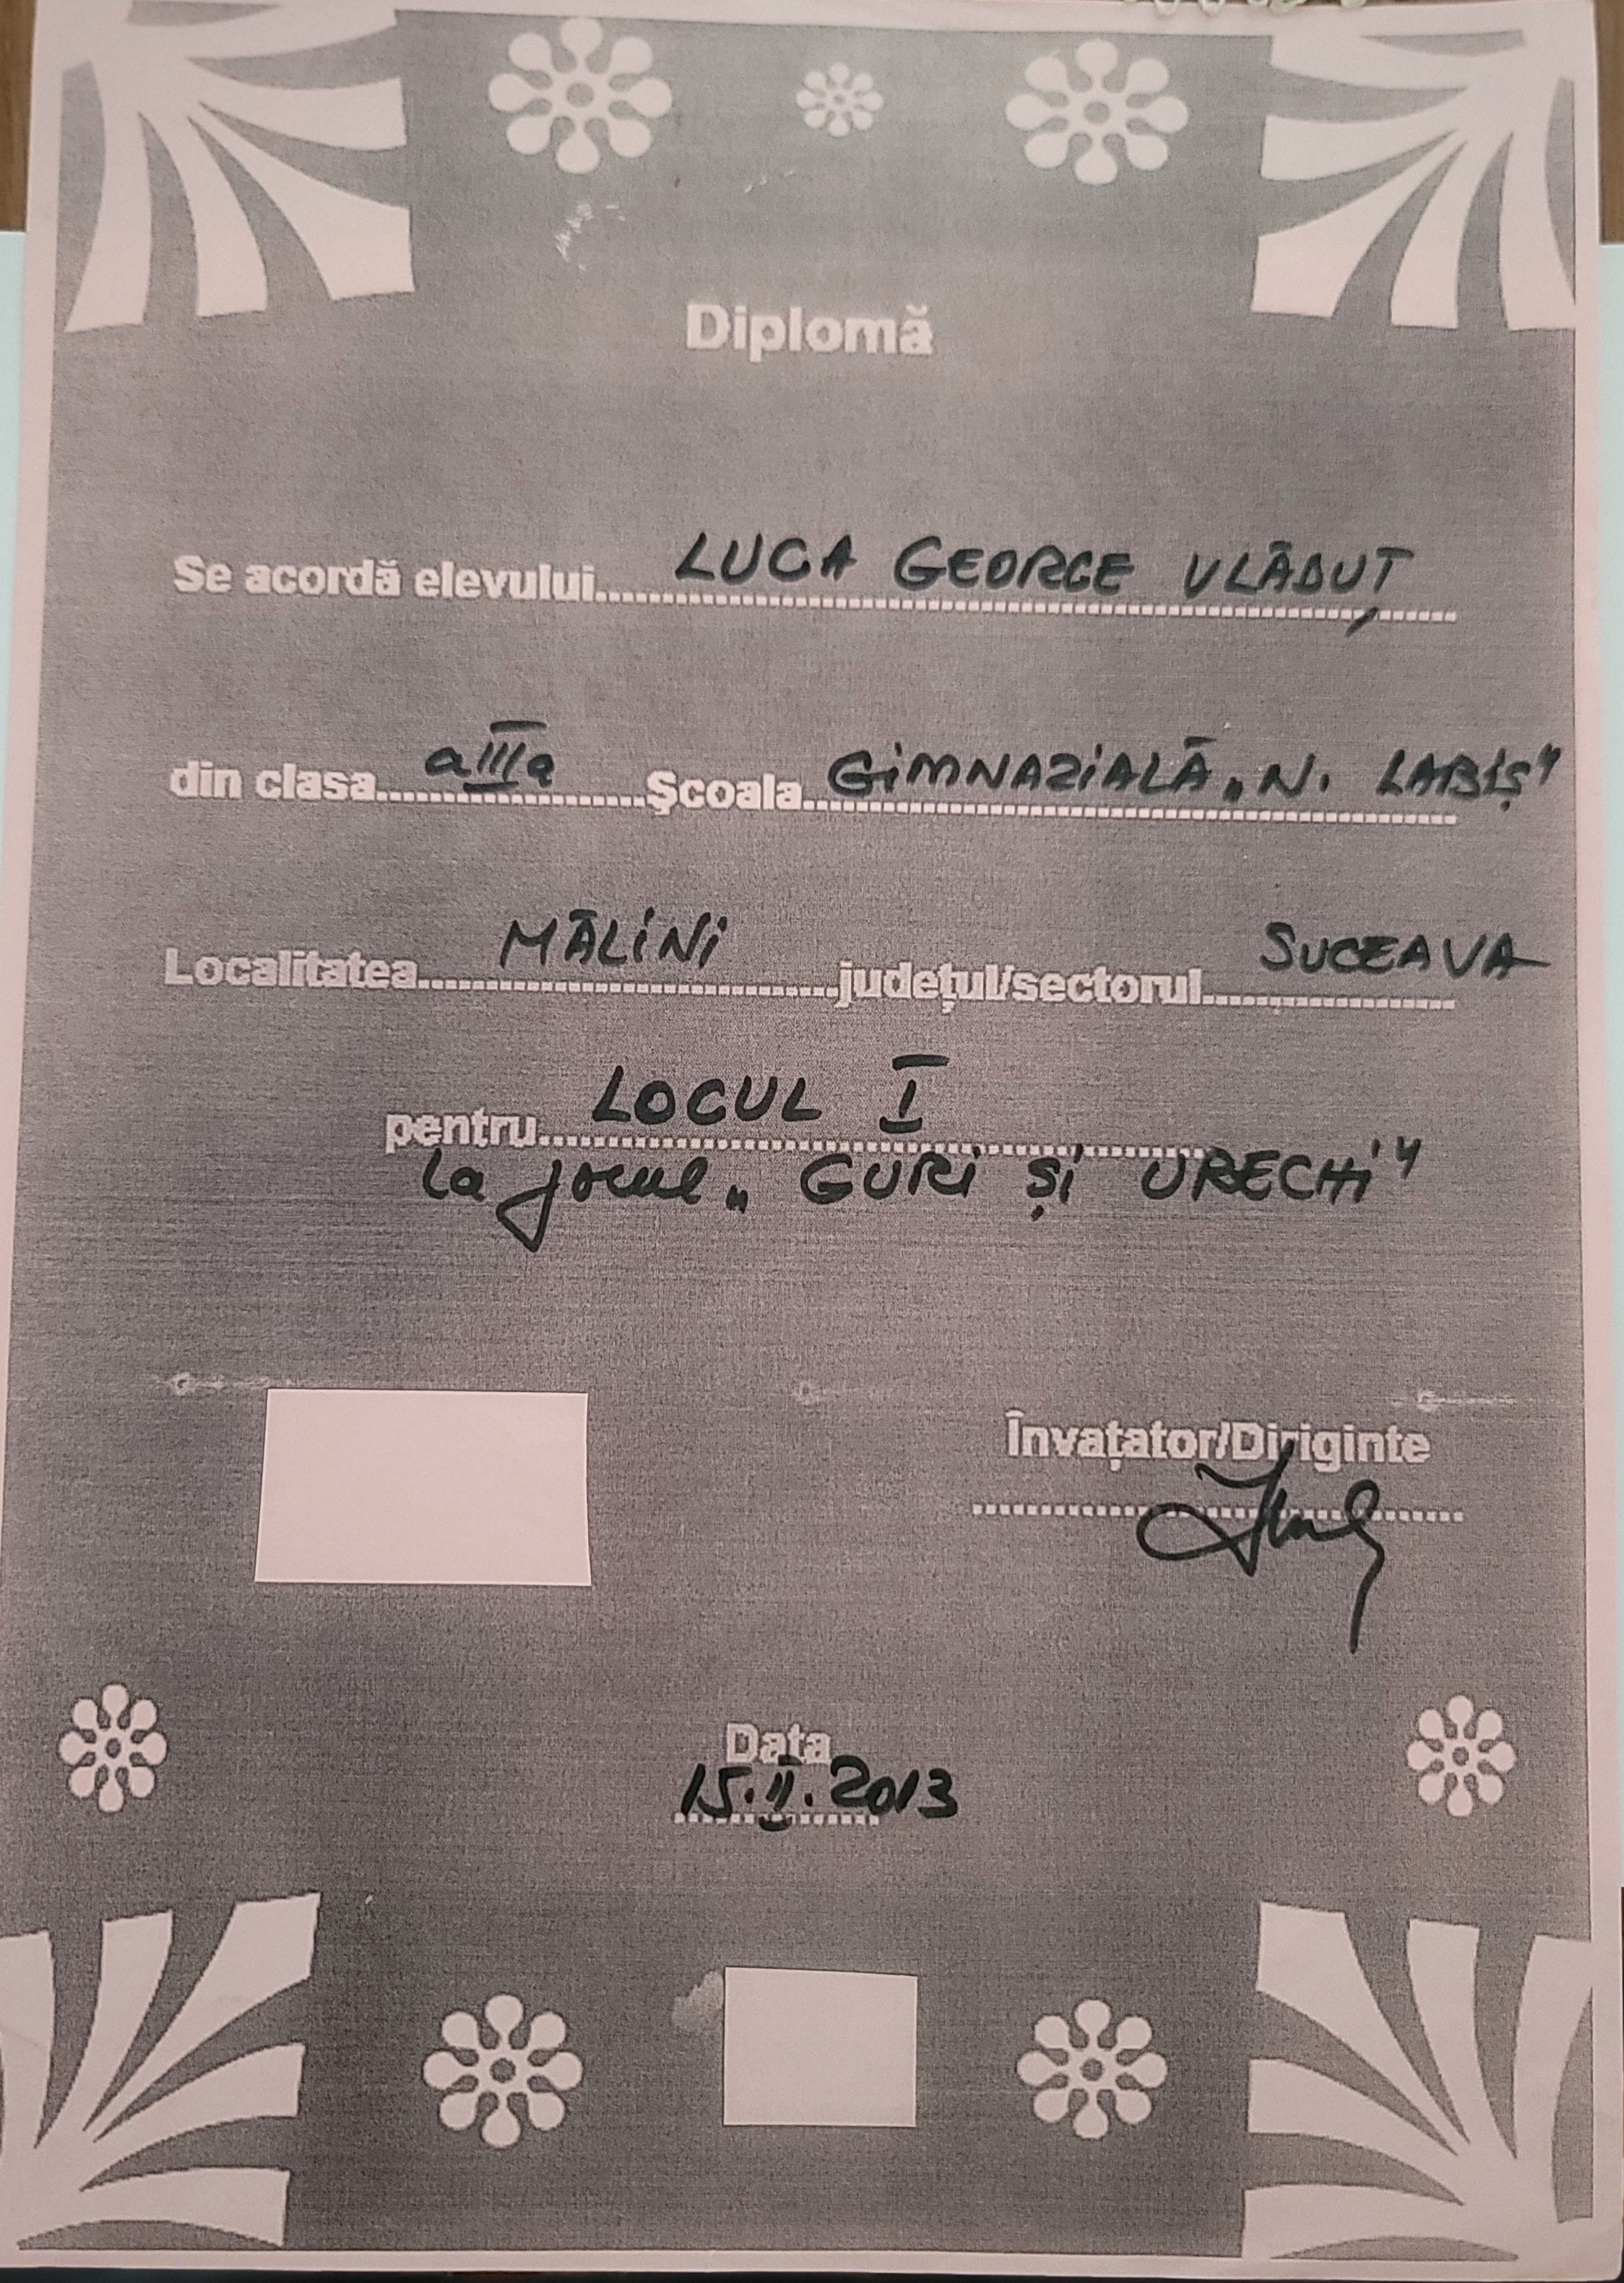 Diplomă
Se acordă elevului LUCA GEORGE VLĂDUȚ
din clasa a III a Școala GIMNAZIALĂ „N. LABIȘ”
Localitatea MĂLINI județul/sectorul SUCEAVA
pentru LOCUL I
la jocul „GURI ȘI URECHI”
Învațator/Diriginte
Data
15.II.2013